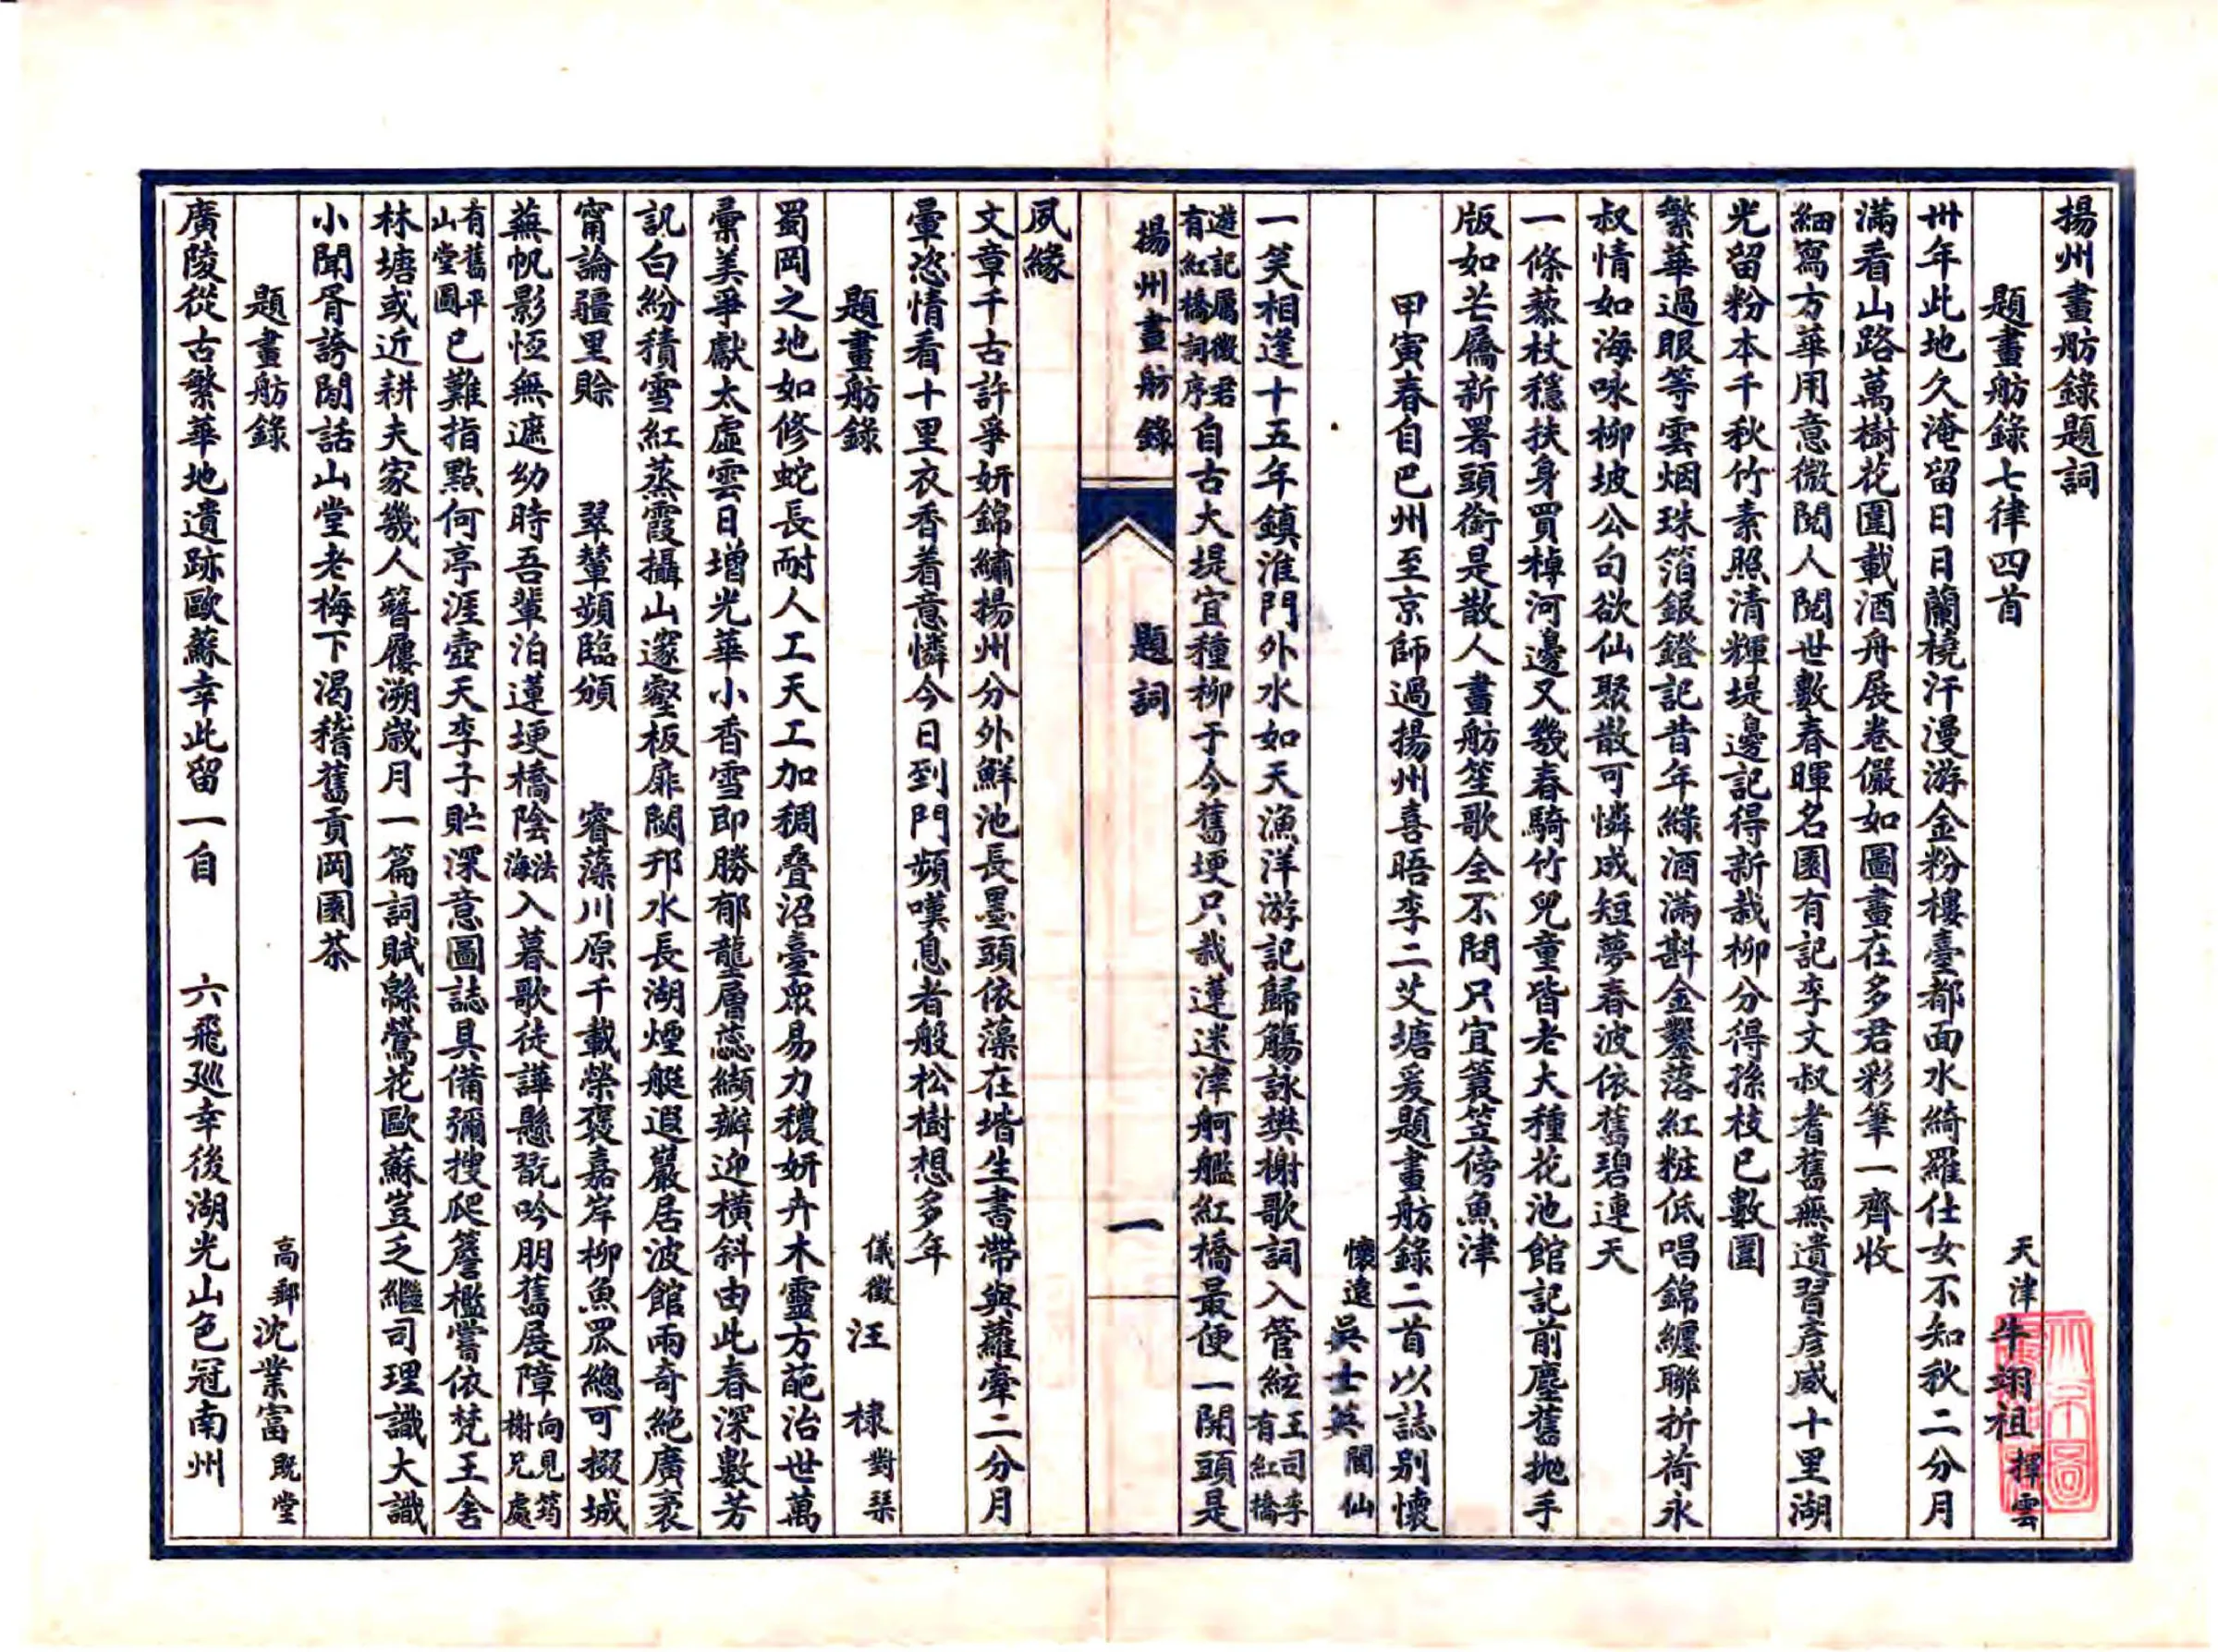 揚州畫舫錄題詞
題畫舫錄七律四首　天津牛翊祖擇雲
卅年此地久淹留日日蘭橈汗漫游金粉樓臺都面水綺羅仕女不知秋二分月
滿看山路萬樹花圍載酒舟展卷儼如圖畫在多君彩筆一齊收
細寫方華用意微閱人閱世數春暉名園有記李文叔耆舊無遺習彥威十里湖
光留粉本千秋竹素照清輝堤邊記得新栽柳分得孫枝已數圍
繁華過眼等雲烟珠箔銀鐙記昔年綠酒滿斟金鑿落紅粧低唱錦纏聯折荷永
叔情如海咏柳坡公句欲仙聚散可憐成短夢春波依舊碧連天
一條藜杖穩扶身買棹河邊又幾春騎竹兒童皆老大種花池館記前塵舊拋手
版如芒屩新署頭銜是散人畫舫笙歌全不問只宜簑笠傍魚津
甲寅春自巴州至京師過揚州喜晤李二艾塘爰題畫舫錄二首以誌別懷
懷遠吳士英閬仙
一笑相逢十五年鎮淮門外水如天漁洋游記歸觴詠樊榭歌詞入管絃王司李有紅橋
遊記厲徵君有紅橋詞序自古大堤宜種柳于今舊埂只栽蓮迷津舸艦紅橋最便一開頭是
揚州畫舫錄　題詞　一
夙緣
文章千古許爭妍錦繡揚州分外鮮池長墨頭依藻在堦生書帶與蘿牽二分月
暈恣情看十里衣香着意憐今日到門頻嘆息者般松樹想多年
題畫舫錄　儀徵汪棣對琴
蜀岡之地如修蛇長耐人工天工加稠疊沼臺眾易力穠妍卉木靈方葩治世萬
彙美爭獻太虛雲日增光華小香雪即勝郁壟層蕊纈瓣迎橫斜由此春深數芳
訊白紛積雪紅蒸霞攝山邃壑板扉閟邗水長湖煙艇遐巖居波館兩奇絶廣袤
甯論疆里賒　翠輦頻臨頒　睿藻川原千載榮褒嘉岸柳魚罛總可掇城
蕪帆影恆無遮幼時吾輩泊蓮埂橋陰法海入暮歌徒譁懸翫吟朋舊展障向見筠榭兄處
有舊平山堂圖已難指點何亭涯壺天李子貯深意圖誌具備彌搜爬簷檻嘗依梵王舍
林塘或近耕夫家幾人簪屨溯歲月一篇詞賦緜鶯花歐蘇豈乏繼司理識大識
小聞胥誇閒話山堂老梅下渴稽舊貢岡園茶
題畫舫錄　高郵沈業富既堂
廣陵從古繁華地遺跡歐蘇幸此留一自　六飛巡幸後湖光山色冠南州